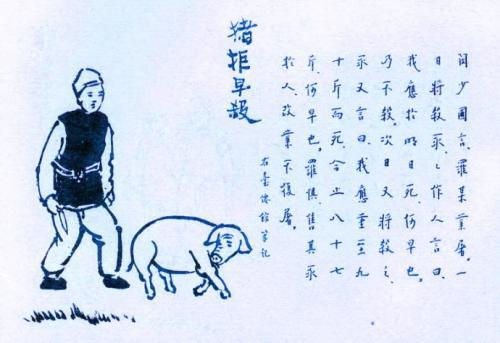 少園言、羅某業屠。一
日將殺豕、々作人言曰、
我應於明日死、何早也。
乃不殺。次日又將殺之、
豕又言曰、我應重至九
十斤而死、今止八十七
斤、何早也。羅懼、售其豕
於人、改業不復屠。
右臺仙館筆記
猪拒早殺